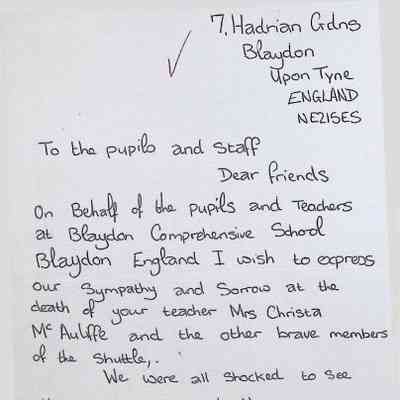 7, Hadrian Gdns
Blaydon
Upon Tyne
ENGLAND
NE215ES
To the pupils and Staff
Dear friends
On Behalf of the pupils and Teachers
at Blaydon Comprehensive School
Blaydon England I wish to express
our Sympathy and Sorrow at the
death of your teacher Mrs Christa
Mc Auliffe and the other brave members
of the Shuttle,.
We were all shocked to see